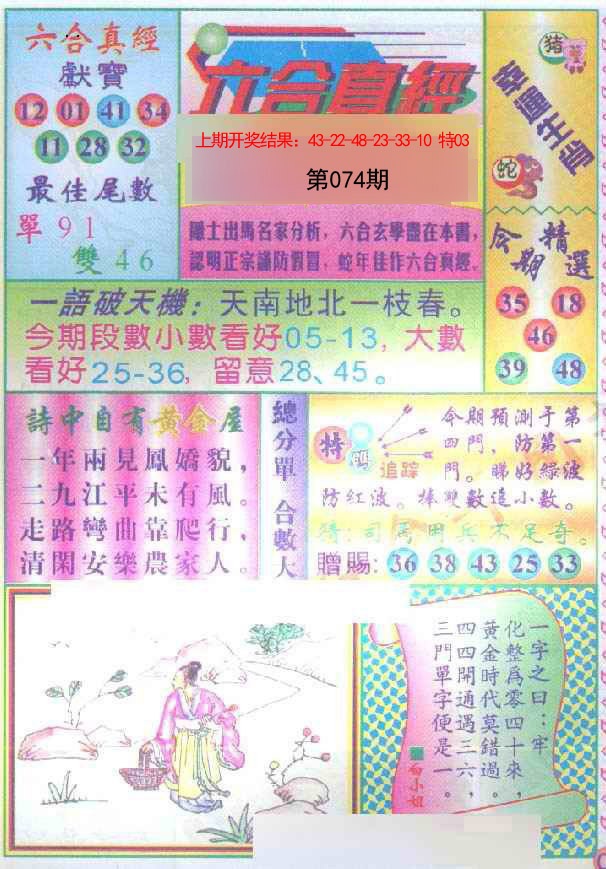 六合真經
獻寶
12 01 41 34
11 28 32
最佳尾數
單 91
雙 46
六合真經
上期开奖结果：43-22-48-23-33-10 特03
第074期
隱士出馬名家分析，六合玄學盡在本書，
認明正宗謹防假冒，蛇年佳作六合真經。
猪
幸運生肖
蛇
今期精選
35 18
46
39 48
一語破天機：天南地北一枝春。
今期段數小數看好05-13，大數
看好25-36，留意28、45。
詩中自有黃金屋
一年兩見鳳嬌貌，
二九江平未有風。
走路彎曲靠爬行，
清閑安樂農家人。
總分單 合數大
特 碼
追踪
今期預測于第
四門，防第一
門。睇好綠波
防紅波。捧雙數追小數。
猜：司馬用兵不足奇。
贈賜：36 38 43 25 33
一字之曰：牢
化整爲零四十來，
黃金時代莫錯過，
四四開通遇三六，
三門單字便是一。
白小姐